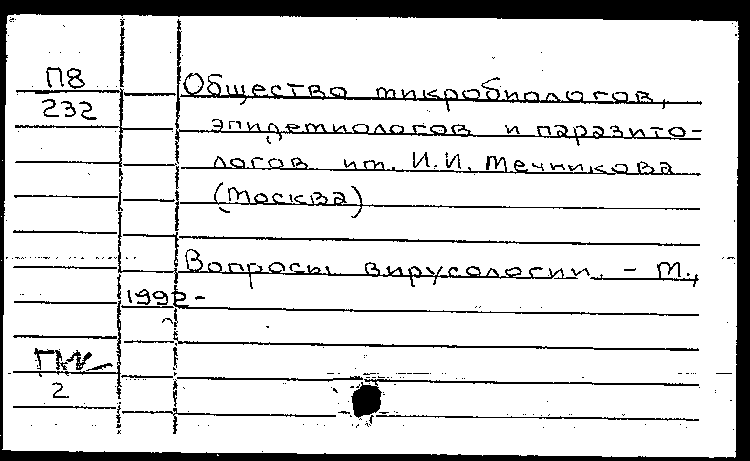 П8
232
Общество микробиологов,
эпидемиологов и паразито-
логов им. И.И. Мечникова
(Москва)
Вопросы вирусологии. - М.,
1992-
2